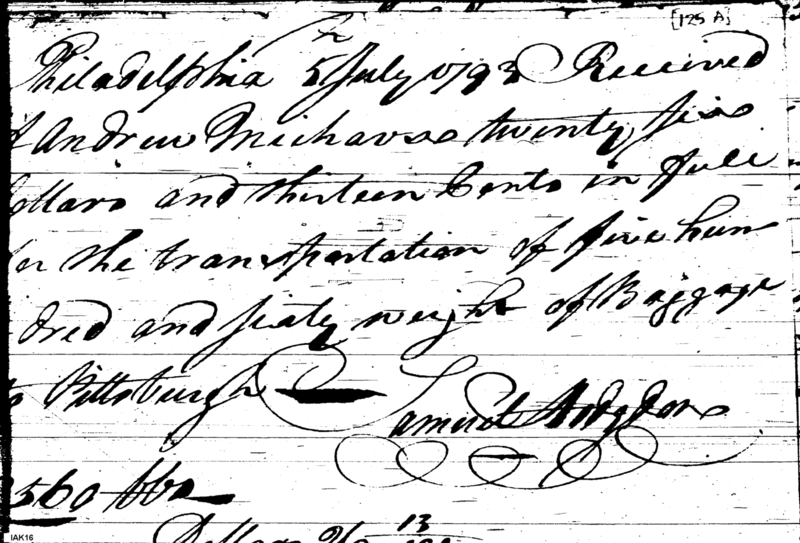 [125 A]
Philadelphia 5 July 1793 Received
Andrew Michause twenty six
ollars and thirteen Cents in full
for the transportation of five hun
dred and sixty weight of Baggage
to Pittsburgh
Samuel Hodgdon
560 lbs
Dollars 26 13
IAK16